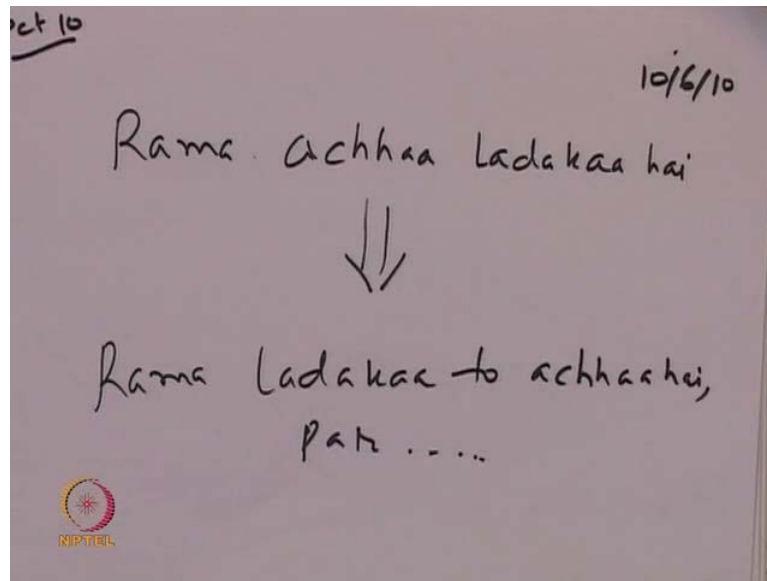 ect 10
10/6/10
Rama achhaa ladakaa hai
Rama ladakaa to achhaa hai,
par .....
NPTEL